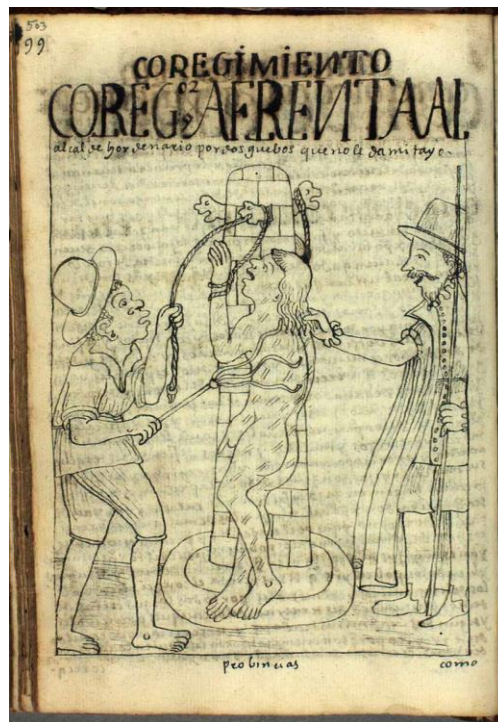 503
99
COREGIMIENTO
COREG.or AFRENTA AL
alcalde hordenario por dos guebos que no le da mitayo.
probincias
como